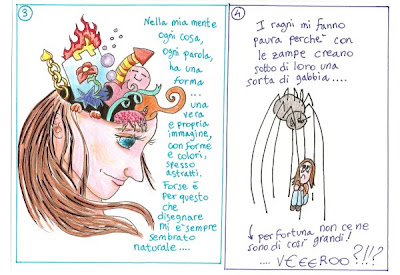 3
Nella mia mente
ogni cosa,
ogni parola,
ha una
forma
...
una
vera
e propria
immagine,
con forme
e colori,
spesso
astratti.
Forse è
per questo
che
disegnare
mi è sempre
sembrato
naturale ....
4
I ragni mi fanno
paura perchè con
le zampe creano
sotto di loro una
sorta di gabbia....
per fortuna non ce ne
sono di così grandi!
.... VEEEROO?!!?